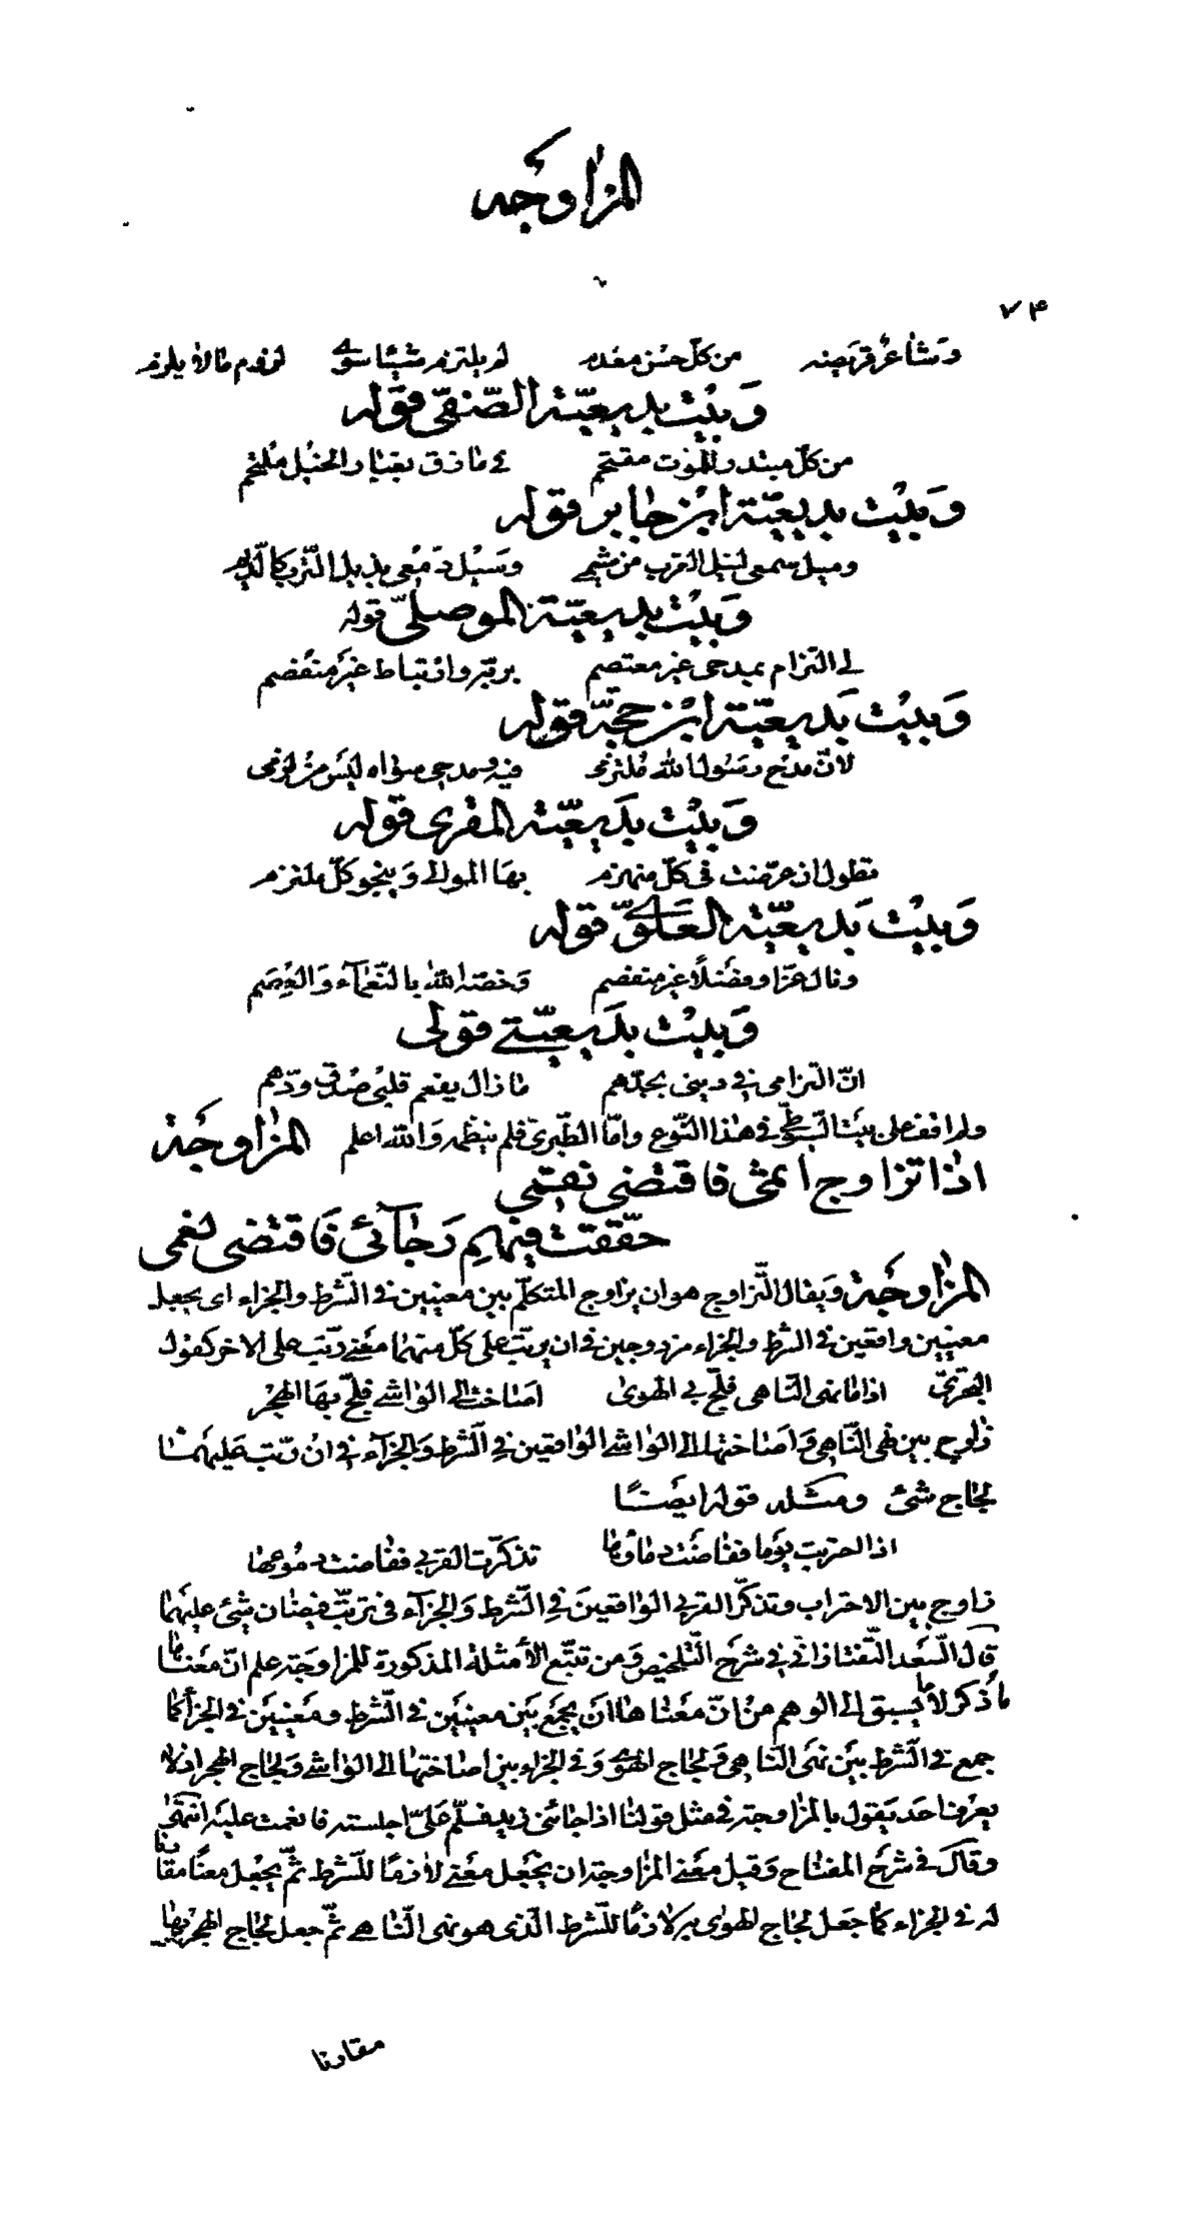 المزاوجه
٧۴
وشاعر قريضه من كلّ حسن معدم لم يلتزم شيئا سوى لزوم ما لا يلزم
وَبَيْت بديعيّة الصّفيّ قوله
من كلّ مبتدر للموت مقتحم في مازق بغبار الحرب ملتحم
وَبَيْت بديعيّة ابن جابر قوله
وميل سمعي لنيل القرب من شيمي وسَيْل دمعي بذيل التّرب كالدّيم
وَبَيْت بديعيّة الموصليّ قوله
لي التزام بمدحي غير معتصم بربّه وارتباط غير منفصم
وَبَيْت بَديعيّة ابن حجّة قوله
لانّ مدح رسول الله ملتزمي فيه ومدحي سواه ليس من لزمي
وَبَيْت بَديعيّة المقري قوله
تطول ان عرضت في كلّ منهزم بها الموالي وينجو كلّ ملتزم
وَبَيْت بَديعيّة العلوىّ قوله
ونال عزّا وفضلًا غير منفصم وَخصّه الله بالنّعمآء وَالعِصَم
وَبَيْت بَديعيّتي قولي
انّ التزامي في ديني بحبّهم ما زال يفعم قلبي صدق ودّهم
ولم اقف على بيت السّيوطي في هذا النّوع وامّا الطّبري فلم ينظمه وَالله اعلم المزاوجَة
اذا تزاوج اثمي فاقتضى نقمي
حقّقت فيهم رَجآئي فَاقتضى نعمي
المزاوجَة وَيقال التّزاوج هو ان يزاوج المتكلّم بين معنيين في الشّرط والجزاء اى يجعل
معنيين واقعين في الشرط والجزاء مزدوجين في ان يرتّب على كلّ منهما معنى رتّب على الاخر كقول
البحتريّ اذا ما نهى النّاهى فلجّ بي الهوى اصاخت الى الواشي فلجّ بها الهجر
زاوج بين نهى النّاهى وَاصاختها الى الواشي الواقعين في الشّرط وَالجزآء في ان رتّب عليهما
لجاج شئ ومثله قوله ايضًا
اذا احتربت يومًا ففاضت دماؤها تذكّرت القربى ففاضت دموعها
زاوج بين الاحتراب وتذكّر القربى الواقعين في الشّرط وَالجزآء في ترتّب فيضان شئ عليهما
قال السّعد التّفتازاني في شرح التّلخيص وَمن تتبّع الأمثلة المذكورة للمزاوجة علم انّ معناها
ما ذكر لا ما يسبق الى الوهم من انّ معناها ان يجمع بين معنيين في الشّرط ومعنيين في الجزآء كما
جمع في الشّرط بين نهى النّاهى وَلجاج الهوى وَفي الجزاء بين اصاختها الى الواشي وَلجاج الهجر اذ لا
يعرف احد يَقول بالمزاوجة في مثل قولنا اذا جائني زيد فسلّم عَلَىّ اجلسته فانعمت عليه انتهى
وقال في شرح المفتاح وَقيل معنى المزاوجة ان يجعل معنى لازمًا للشّرط ثمّ يجعل معنًا مقارنا
له في الجزاء كما جعل لجاج الهوى به لازمًا للشّرط الّذي هو نهى النّاهي ثمّ جعل لجاج الهجر بها
مقارنا